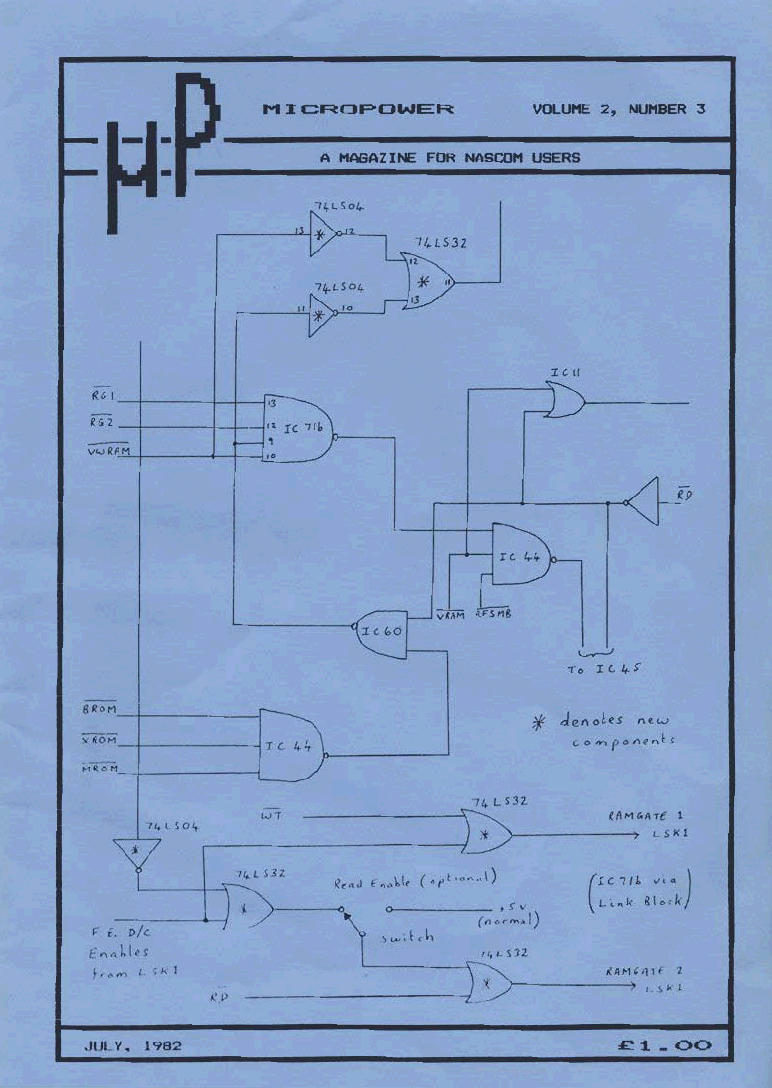 µP
MICROPOWER
VOLUME 2, NUMBER 3
A MAGAZINE FOR NASCOM USERS
74LS04
13 * 12
74LS32
12
* 11
13
74LS04
11 * 10
IC11
RG1
13
RG2
12 IC 71b
9
VWRAM
10
RD
IC 44
VRAM
RFSMB
IC60
To IC45
BROM
XROM
IC 44
MROM
* denotes new
components
74LS32
WT
*
RAMGATE 1
LSK1
74LS04
*
74LS32
*
Read Enable (optional)
+5v
(normal)
(IC71b via
Link Block)
F.E. D/C
Enables
from LSK1
Switch
74LS32
*
RAMGATE 2
LSK1
RD
JULY, 1982
£1.00